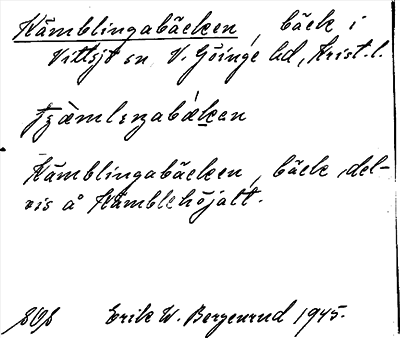 Kämblingabäcken, bäck i
Vittsjö sn, V. Göinge hd, Krist. l.
Kämblingabäcken, bäck del-
vis å Kämblehöjatt.
Erik W. Bergenrud 1945.